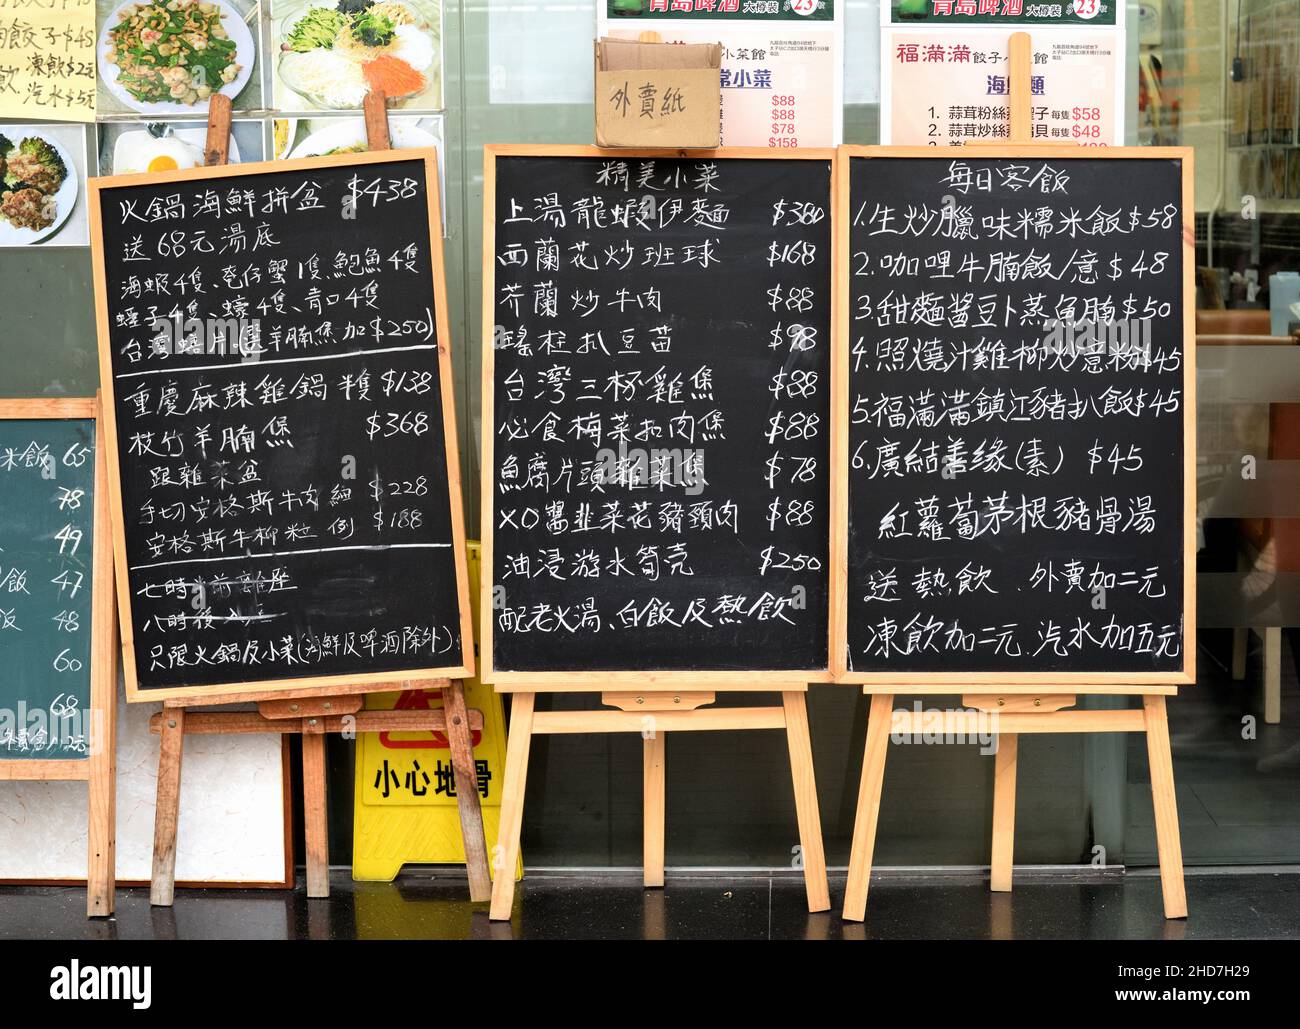 凍飲$2元
汽水$5元
青島啤酒 大樽裝 $23
青島啤酒 大樽裝 $23
外賣紙
小菜館
常小菜
$88
$88
$78
$158
福滿滿餃子小菜館
1. 蒜茸粉絲蒸聖子 每隻 $58
每隻 $48
米飯 65
78
49
飯 47
飯 48
60
68
火鍋海鮮拼盆 $438
送68元湯底
海蝦4隻、奄仔蟹1隻、鮑魚4隻
蟶子4隻、蠔4隻、青口4隻
台灣蜢片(選羊腩煲加$250)
重慶麻辣雞鍋 半隻 $138
枝竹羊腩煲 $368
跟雜菜盆
手切安格斯牛肉 細 $228
安格斯牛柳粒 例 $188
七時半前離座
八時後入座
只限火鍋及小菜(海鮮及啤酒除外)
精美小菜
上湯龍蝦伊麵 $380
西蘭花炒班球 $168
芥蘭炒牛肉 $88
瑤柱扒豆苗 $98
台灣三杯雞煲 $88
必食梅菜扣肉煲 $88
魚腐片頭雜菜煲 $78
XO醬韭菜花豬頸肉 $88
油浸游水筍壳 $250
配老火湯、白飯及熱飲
每日客飯
1.生炒臘味糯米飯 $58
2.咖哩牛腩飯/意 $48
3.甜麵醬豆卜蒸魚腩 $50
4.照燒汁雞柳炒意粉 $45
5.福滿滿鎮江豬扒飯 $45
6.廣結善缘(素) $45
紅蘿蔔茅根豬骨湯
送熱飲.外賣加二元
凍飲加二元.汽水加五元
小心地滑
alamy
Image ID: 2HD7H29
www.alamy.com